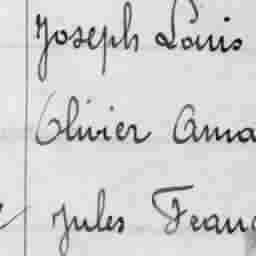 Joseph Louis
Olivier Ama
Jules Franç